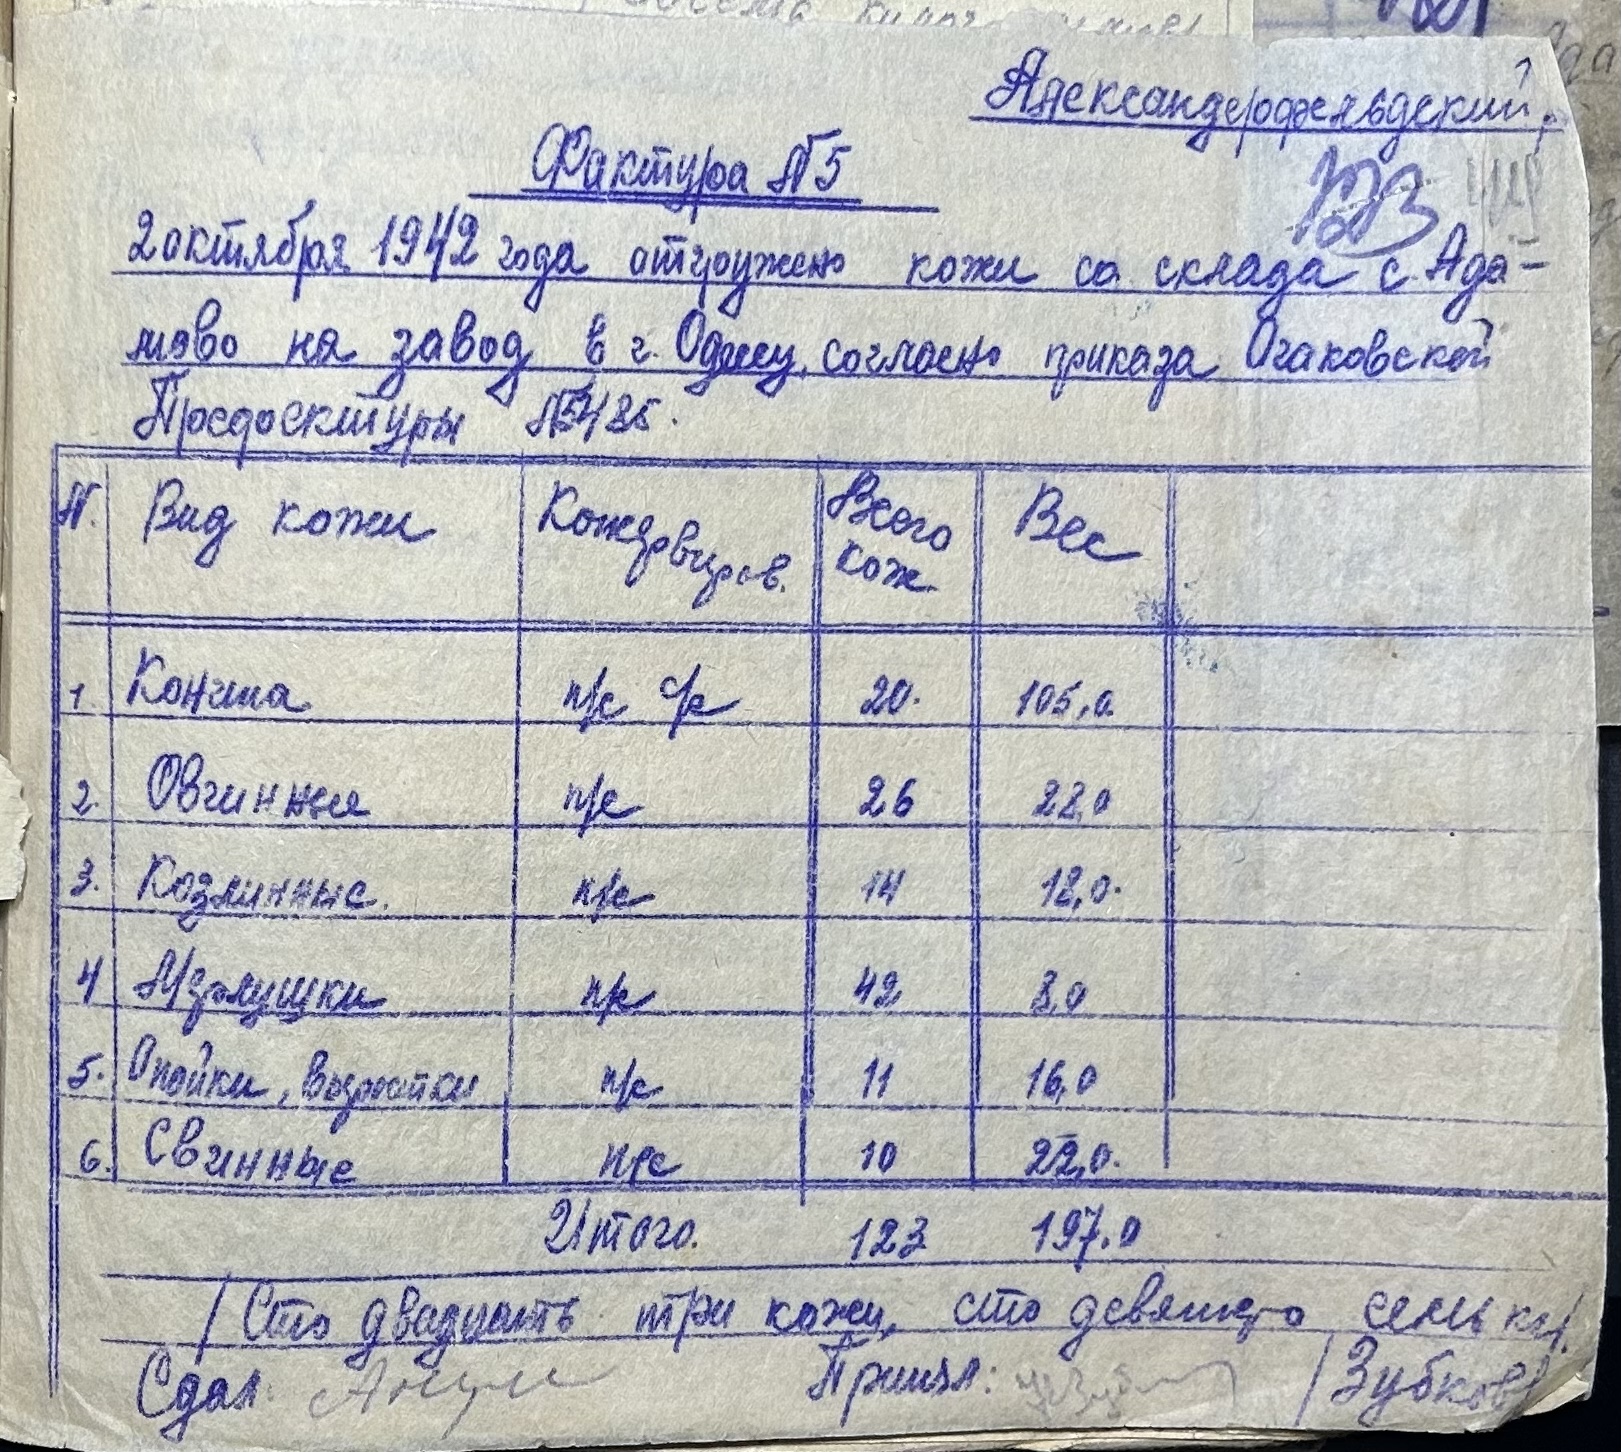 Александерфельдский
Фактура №5
2 октября 1942 года отгружено кожи со склада с. Ада-
мово на завод в г. Одессу, согласно приказа Очаковской
Предоектуры №5485.
N. Вид кожи Всего кож. Вес
1. Конина п/с с/с 20. 105,0
2. Овчинные п/с 26
3. Козлинные. п/с 14 12,0.
4 Мерлушки п/с 42 8,0
5. Опойки, выростки п/с 11 16,0
6. Свинные п/с 10 22,0.
Итого. 123 197.0
/ Сто двадцать три кожи, сто девяносто семь кг/.
Сдал: Принял: /Зубков/